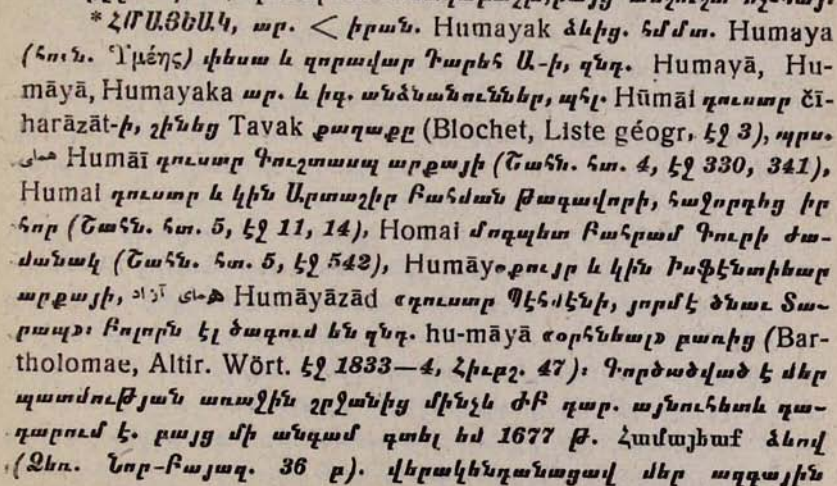 *ՀՄԱՅԵԱԿ, ար. < իրան. Humayak ձևից. հմմտ. Humaya
(հուն. Ὑμέης) փեսա և զորավար Դարեհ Ա-ի, զնդ. Humayā, Hu-
māyā, Humayaka ար. և իգ. անձնանուններ, պհլ. Hūmāi դուստր čī-
harāzāt-ի, շինեց Tavak քաղաքը (Blochet, Liste géogr. էջ 3), պրս.
همای Humāī դուստր Գուշտասպ արքայի (Շահն. հտ. 4, էջ 330, 341),
Humai դուստր և կին Արտաշիր Բահման թագավորի, հաջորդից իր
հոր (Շահն. հտ. 5, էջ 11, 14), Homai մոգպետ Բահրամ Գուրի ժա-
մանակ (Շահն. հտ. 5, էջ 542), Humāy քույր և կին Իսֆենտիհար
արքայի, همای آزاد Humāyāzād «դուստր Պէհմէնի, յորմէ ծնաւ Տա-
րապ»։ Բոլորն էլ ծագում են զնդ. hu-māyā «օրհնեալ» բառից (Bar-
tholomae, Altir. Wört. էջ 1833—4, Հիւբշ. 47)։ Գործածված է մեր
պատմության առաջին շրջանից մինչև ԺԲ դար. այնուհետև դա-
դարում է. բայց մի անգամ գտել եմ 1677 թ. Համայեաք ձևով
(Ձեռ. Նոր-Բայազ. 36 բ). վերակենդանացավ մեր ազգային